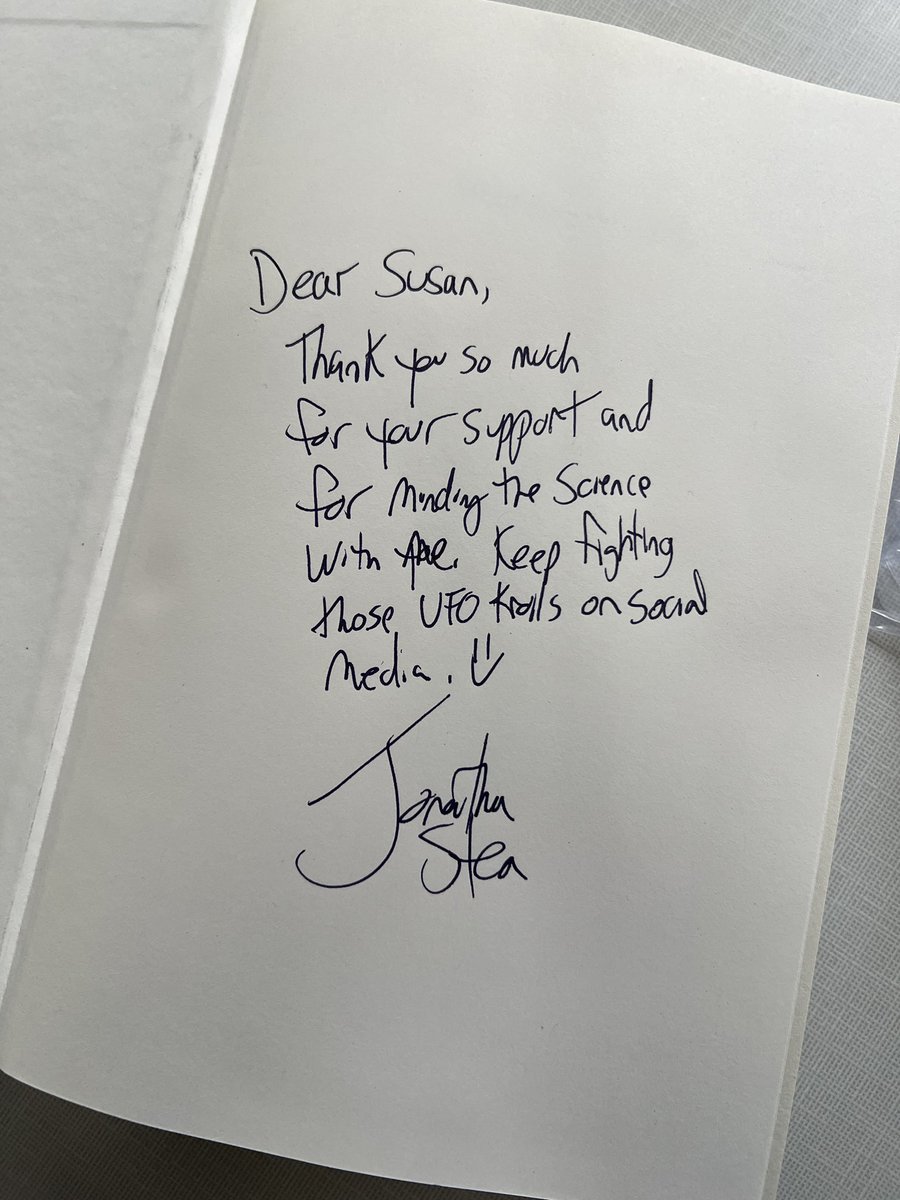 Dear Susan,
Thank you so much
for your support and
for minding the Science
With me. Keep fighting
those UFO trolls on social
media.
Jonathan
Stea